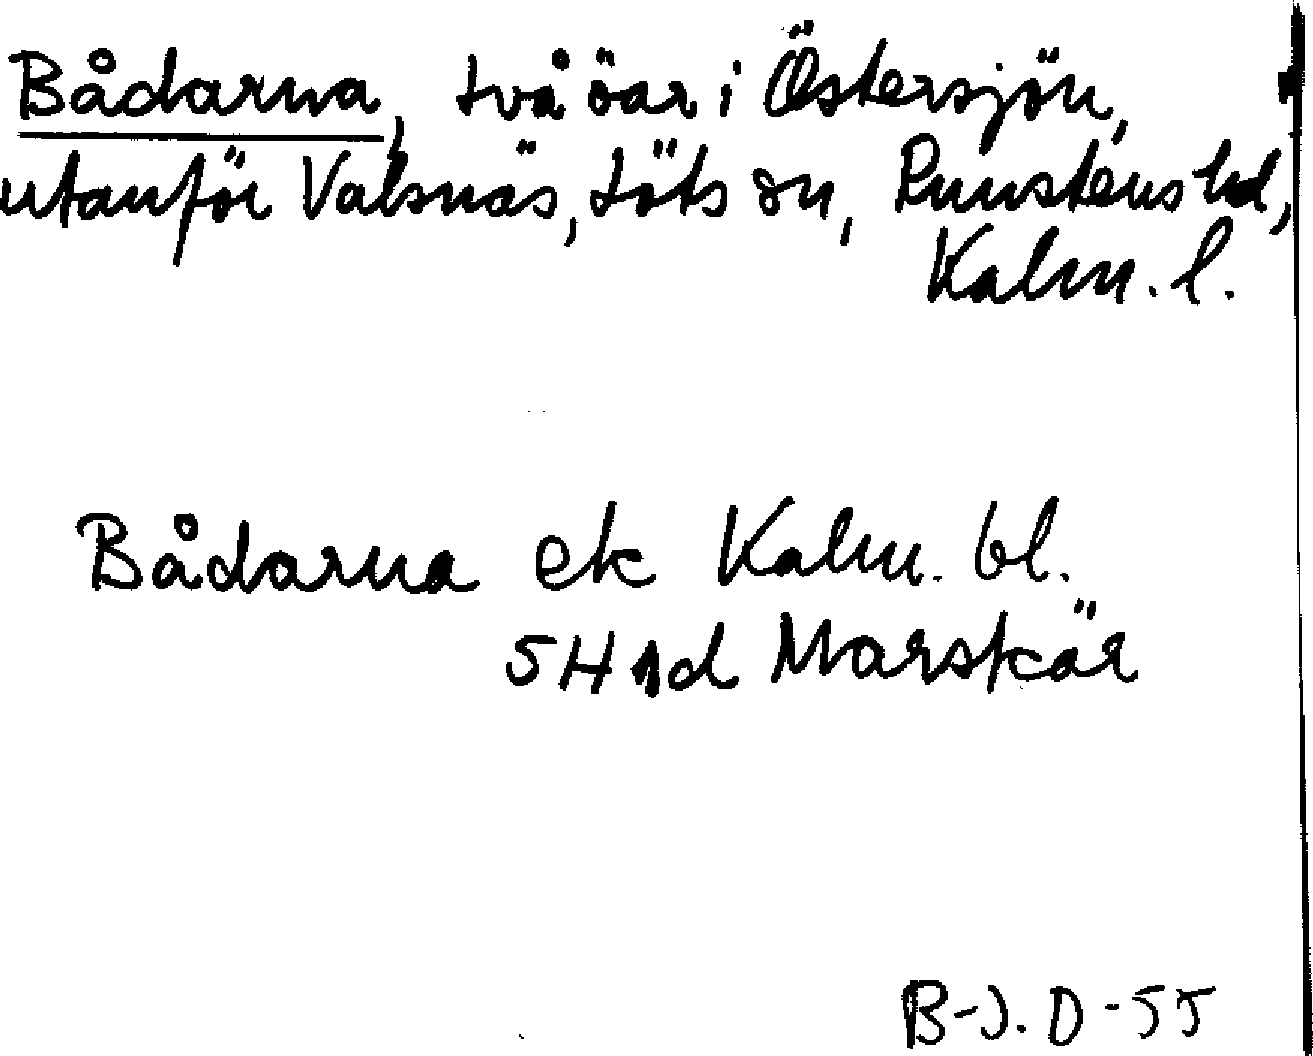 Bådarna, två öar i Östersjön,
utanför Valsnäs, Löts sn, Runstens hd,
Kalm. l.
Bådarna ek Kalm. bl.
5H 1d Marskär
B-J. D-55